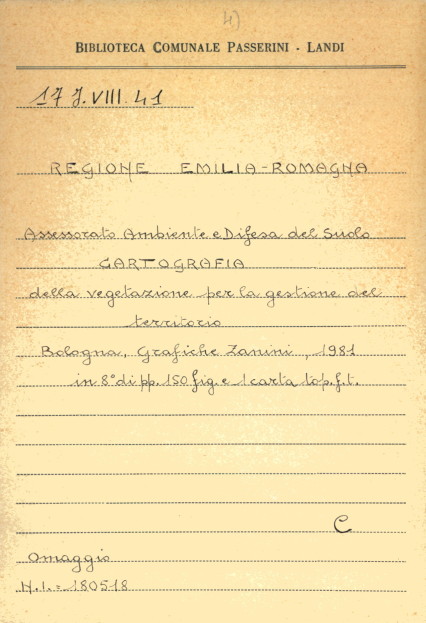 4)
BIBLIOTECA COMUNALE PASSERINI - LANDI
17 J. VIII 41
REGIONE EMILIA-ROMAGNA
Assessorato Ambiente e Difesa del Suolo
CARTOGRAFIA
della vegetazione per la gestione del
territorio
Bologna, Grafiche Zanini, 1981
in 8° di pp. 150 fig. e 1 carta top. f.t.
C
Omaggio
N.I. = 180518